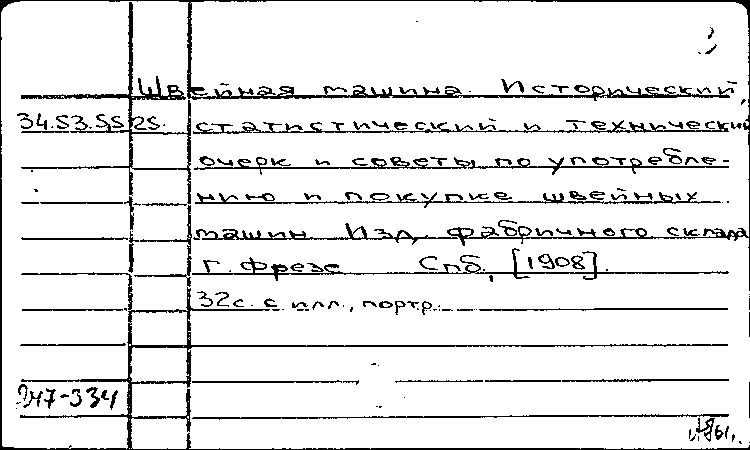 Швейная машина. Исторический,
34.53.55.25. статистический и технический
очерк и советы по употребле-
нию и покупке швейных
машин. Изд. фабричного склада
Г. Фрезе Спб., [1908].
32с. с илл., портр.
247-334